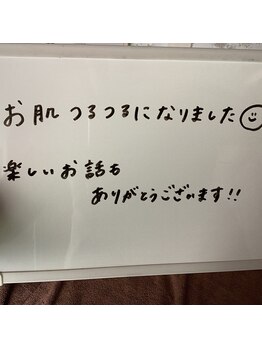 お肌つるつるになりました☺
楽しいお話も
ありがとうございます!!